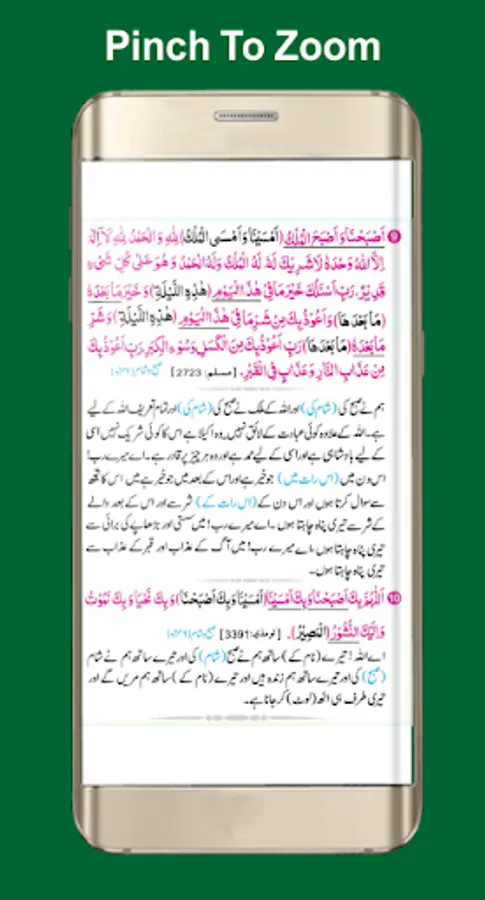 Pinch To Zoom
9 أَصْبَحْنَا وَأَصْبَحَ الْمُلْكُ (أَمْسَيْنَا وَأَمْسَى الْمُلْكُ) لِلّٰهِ وَالْحَمْدُ لِلّٰهِ لَآ اِلٰهَ
اِلَّا اللّٰهُ وَحْدَهُ لَا شَرِيْكَ لَهٗ لَهُ الْمُلْكُ وَلَهُ الْحَمْدُ وَهُوَ عَلٰى كُلِّ شَيْءٍ
قَدِيْرٌ، رَبِّ اَسْئَلُكَ خَيْرَ مَا فِيْ هٰذَا الْيَوْمِ (هٰذِهِ اللَّيْلَةِ) وَخَيْرَ مَا بَعْدَهٗ
(مَا بَعْدَهَا) وَأَعُوْذُ بِكَ مِنْ شَرِّ مَا فِيْ هٰذَا الْيَوْمِ (هٰذِهِ اللَّيْلَةِ) وَشَرِّ
مَا بَعْدَهٗ (مَا بَعْدَهَا) رَبِّ اَعُوْذُ بِكَ مِنَ الْكَسَلِ وَسُوْءِ الْكِبَرِ رَبِّ اَعُوْذُ بِكَ
مِنْ عَذَابٍ فِي النَّارِ وَعَذَابٍ فِي الْقَبْرِ۔ [مسلم: 2723] صبح و شام
ہم نے صبح کی (شام کی) اور اللہ کے ملک نے صبح کی (شام کی) اور تمام تعریف اللہ کے لیے
ہے۔ اللہ کے علاوہ کوئی عبادت کے لائق نہیں، وہ اکیلا ہے اس کا کوئی شریک نہیں اسی
کے لیے بادشاہی ہے اور اسی کے لیے حمد ہے اور وہ ہر چیز پر قادر ہے۔ اے میرے رب!
اس دن میں (اس رات میں) جو خیر ہے اور اس کے بعد میں جو خیر ہے میں اس کا تجھ
سے سوال کرتا ہوں اور اس دن کے (اس رات کے) شر سے اور اس کے بعد والے
کے شر سے تیری پناہ چاہتا ہوں۔ اے میرے رب! میں سستی اور بڑھاپے کی برائی سے
تیری پناہ چاہتا ہوں، اے میرے رب! میں آگ کے عذاب اور قبر کے عذاب سے
تیری پناہ چاہتا ہوں۔
10 اَللّٰهُمَّ بِكَ أَصْبَحْنَا وَبِكَ أَمْسَيْنَا (أَمْسَيْنَا وَبِكَ أَصْبَحْنَا) وَبِكَ نَحْيَا وَبِكَ نَمُوْتُ
وَاِلَيْكَ النُّشُوْرُ (الْمَصِيْرُ)۔ [ترمذی: 3391] صبح و شام
اے اللہ! تیرے (نام کے) ساتھ ہم نے صبح (شام) کی اور تیرے ساتھ ہم نے شام
(صبح) کی اور تیرے ساتھ ہم زندہ ہیں اور تیرے (نام کے) ساتھ ہم مریں گے اور
تیری طرف ہی اٹھ (لوٹ) کر جانا ہے۔